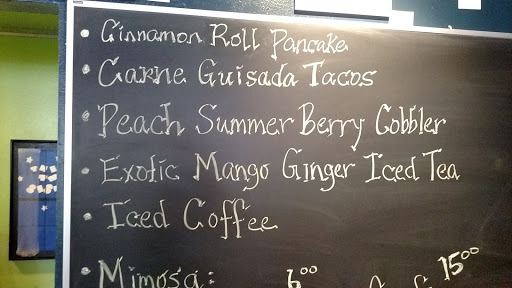 • Cinnamon Roll Pancake
• Carne Guisada Tacos
• Peach Summer Berry Cobbler
• Exotic Mango Ginger Iced Tea
• Iced Coffee
• Mimosa: 6⁰⁰ 15⁰⁰